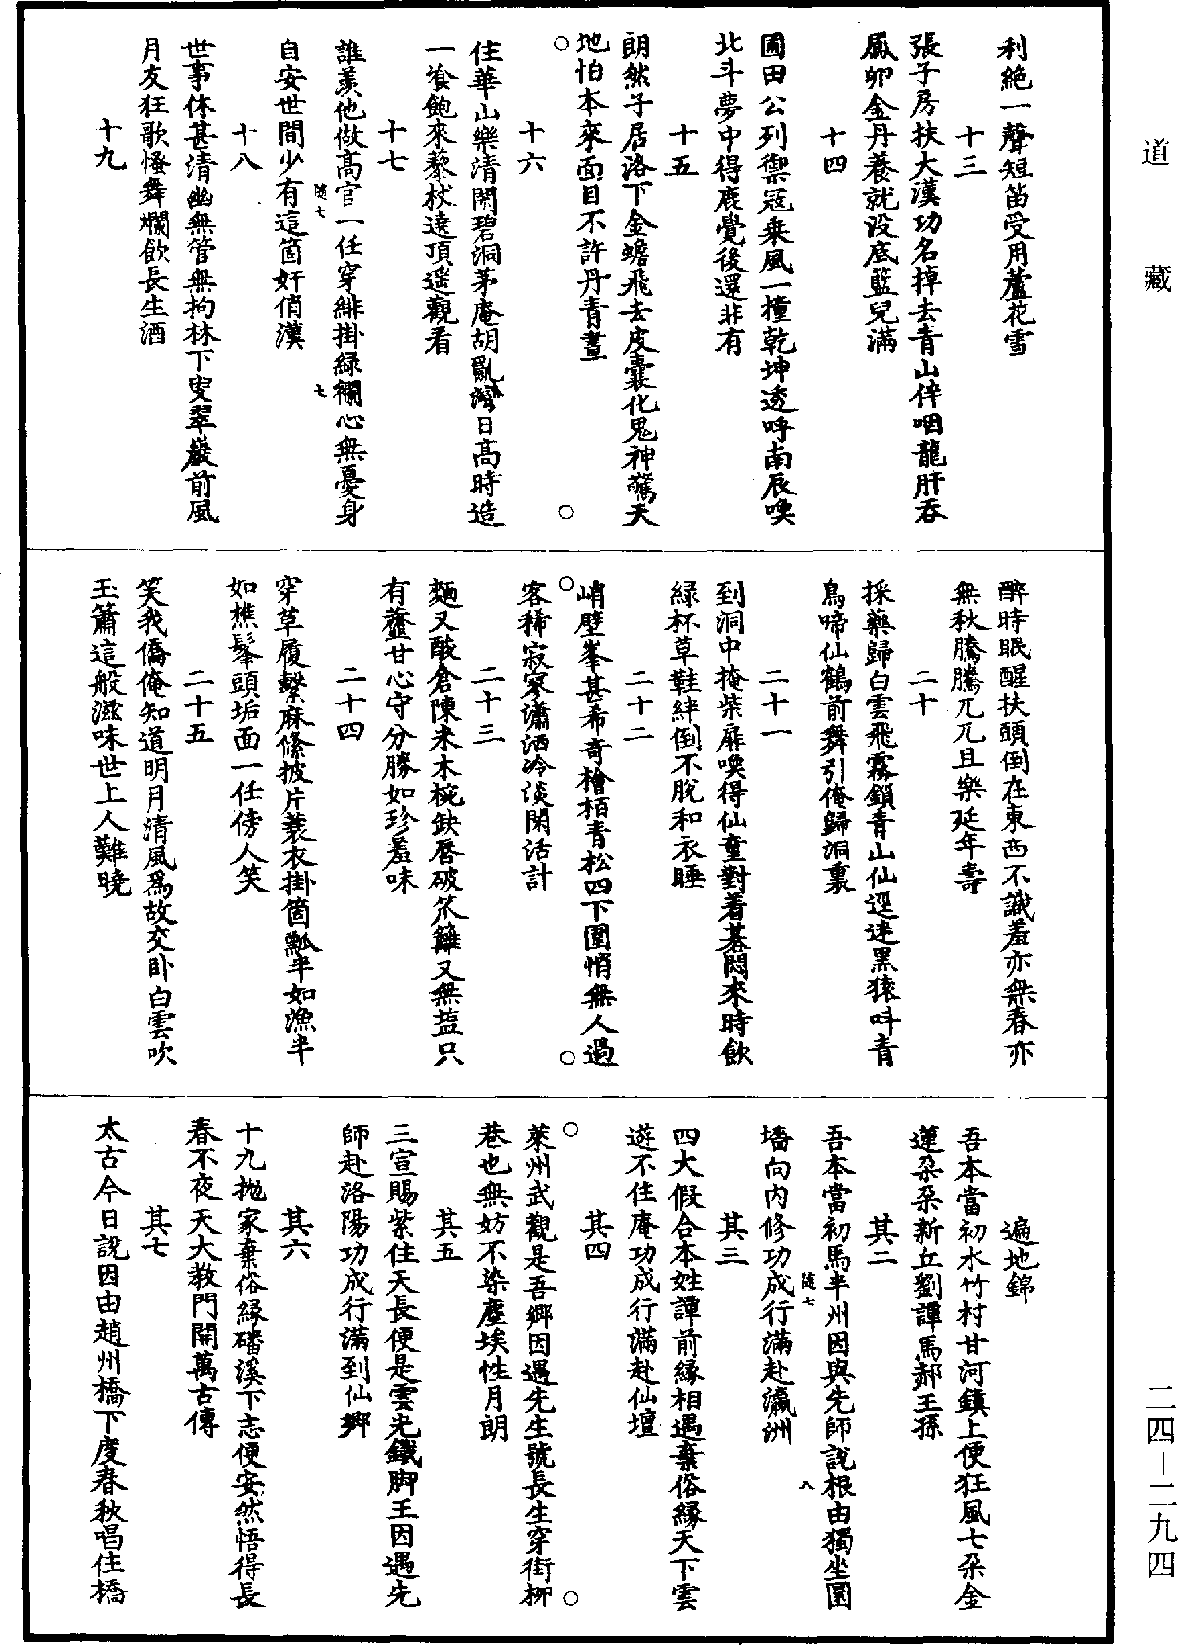 道藏
利絕一聲短笛受用蘆花雪
十三
張子房扶大漢功名掉去青山伴咽龍肝吞
鳳卵金丹養就没底籃兒滿
十四
圃田公列禦冦乗風一撞乾坤透呼南辰喚
北斗夢中得鹿覺後還非有
十五
朗然子居洛下金蟾飛去皮囊化鬼神驚天
地怕本來面目不許丹青畫
十六
住華山樂清閑碧洞茅庵胡亂灣日高時造
一飡飽來藜杖遶頂遥觀看
十七
誰羨他做高官一任穿緋掛綠襴心無憂身
自安世間少有這箇奸俏漢
隨七
七
十八
世事休甚清幽無管無拘林下叟翠巖前風
月友狂歌慅舞爛飲長生酒
十九
醉時眠醒扶頭倒在東西不識羞亦無春亦
無秋騰騰兀兀且樂延年壽
二十
採藥歸白雲飛霧鎖青山仙逕迷黑猿呌青
鳥啼仙鶴前舞引俺歸洞裏
二十一
到洞中掩柴扉喚得仙童對着棊悶來時飲
綠杯草鞋絆倒不脫和衣睡
二十二
峭壁峯甚希奇檜栢青松四下圍悄無人過
客稀寂寞瀟洒冷淡閑活計
二十三
麵又酸倉陳米木椀缺唇破笊籬又無盐只
有虀甘心守分勝如珍羞味
二十四
穿草履繫麻絛披片蓑衣掛箇瓢半如漁半
如樵鬅頭垢面一任傍人笑
二十五
笑我僑俺知道明月清風爲故交卧白雲吹
玉簫這般滋味世上人難曉
遍地錦
吾本當初水竹村甘河鎮上便狂風七朵金
蓮朶朶新丘劉譚馬郝王孫
其二
吾本當初馬半州因與先師說根由獨坐圜
墻向内修功成行滿赴瀛洲
隨七
八
其三
四大假合本姓譚前緣相遇棄俗緣天下雲
遊不住庵功成行滿赴仙壇
其四
萊州武觀是吾鄉因遇先生號長生穿街柳
巷也無妨不染塵埃性月朗
其五
三宣賜紫住天長便是雲光鐵脚王因遇先
師赴洛陽功成行滿到仙鄉
其六
十九抛家棄俗緣磻溪下志便安然悟得長
春不夜天大教門開萬古傳
其七
太古今日說因由趙州橋下度春秋唱住橋
二四—二九四